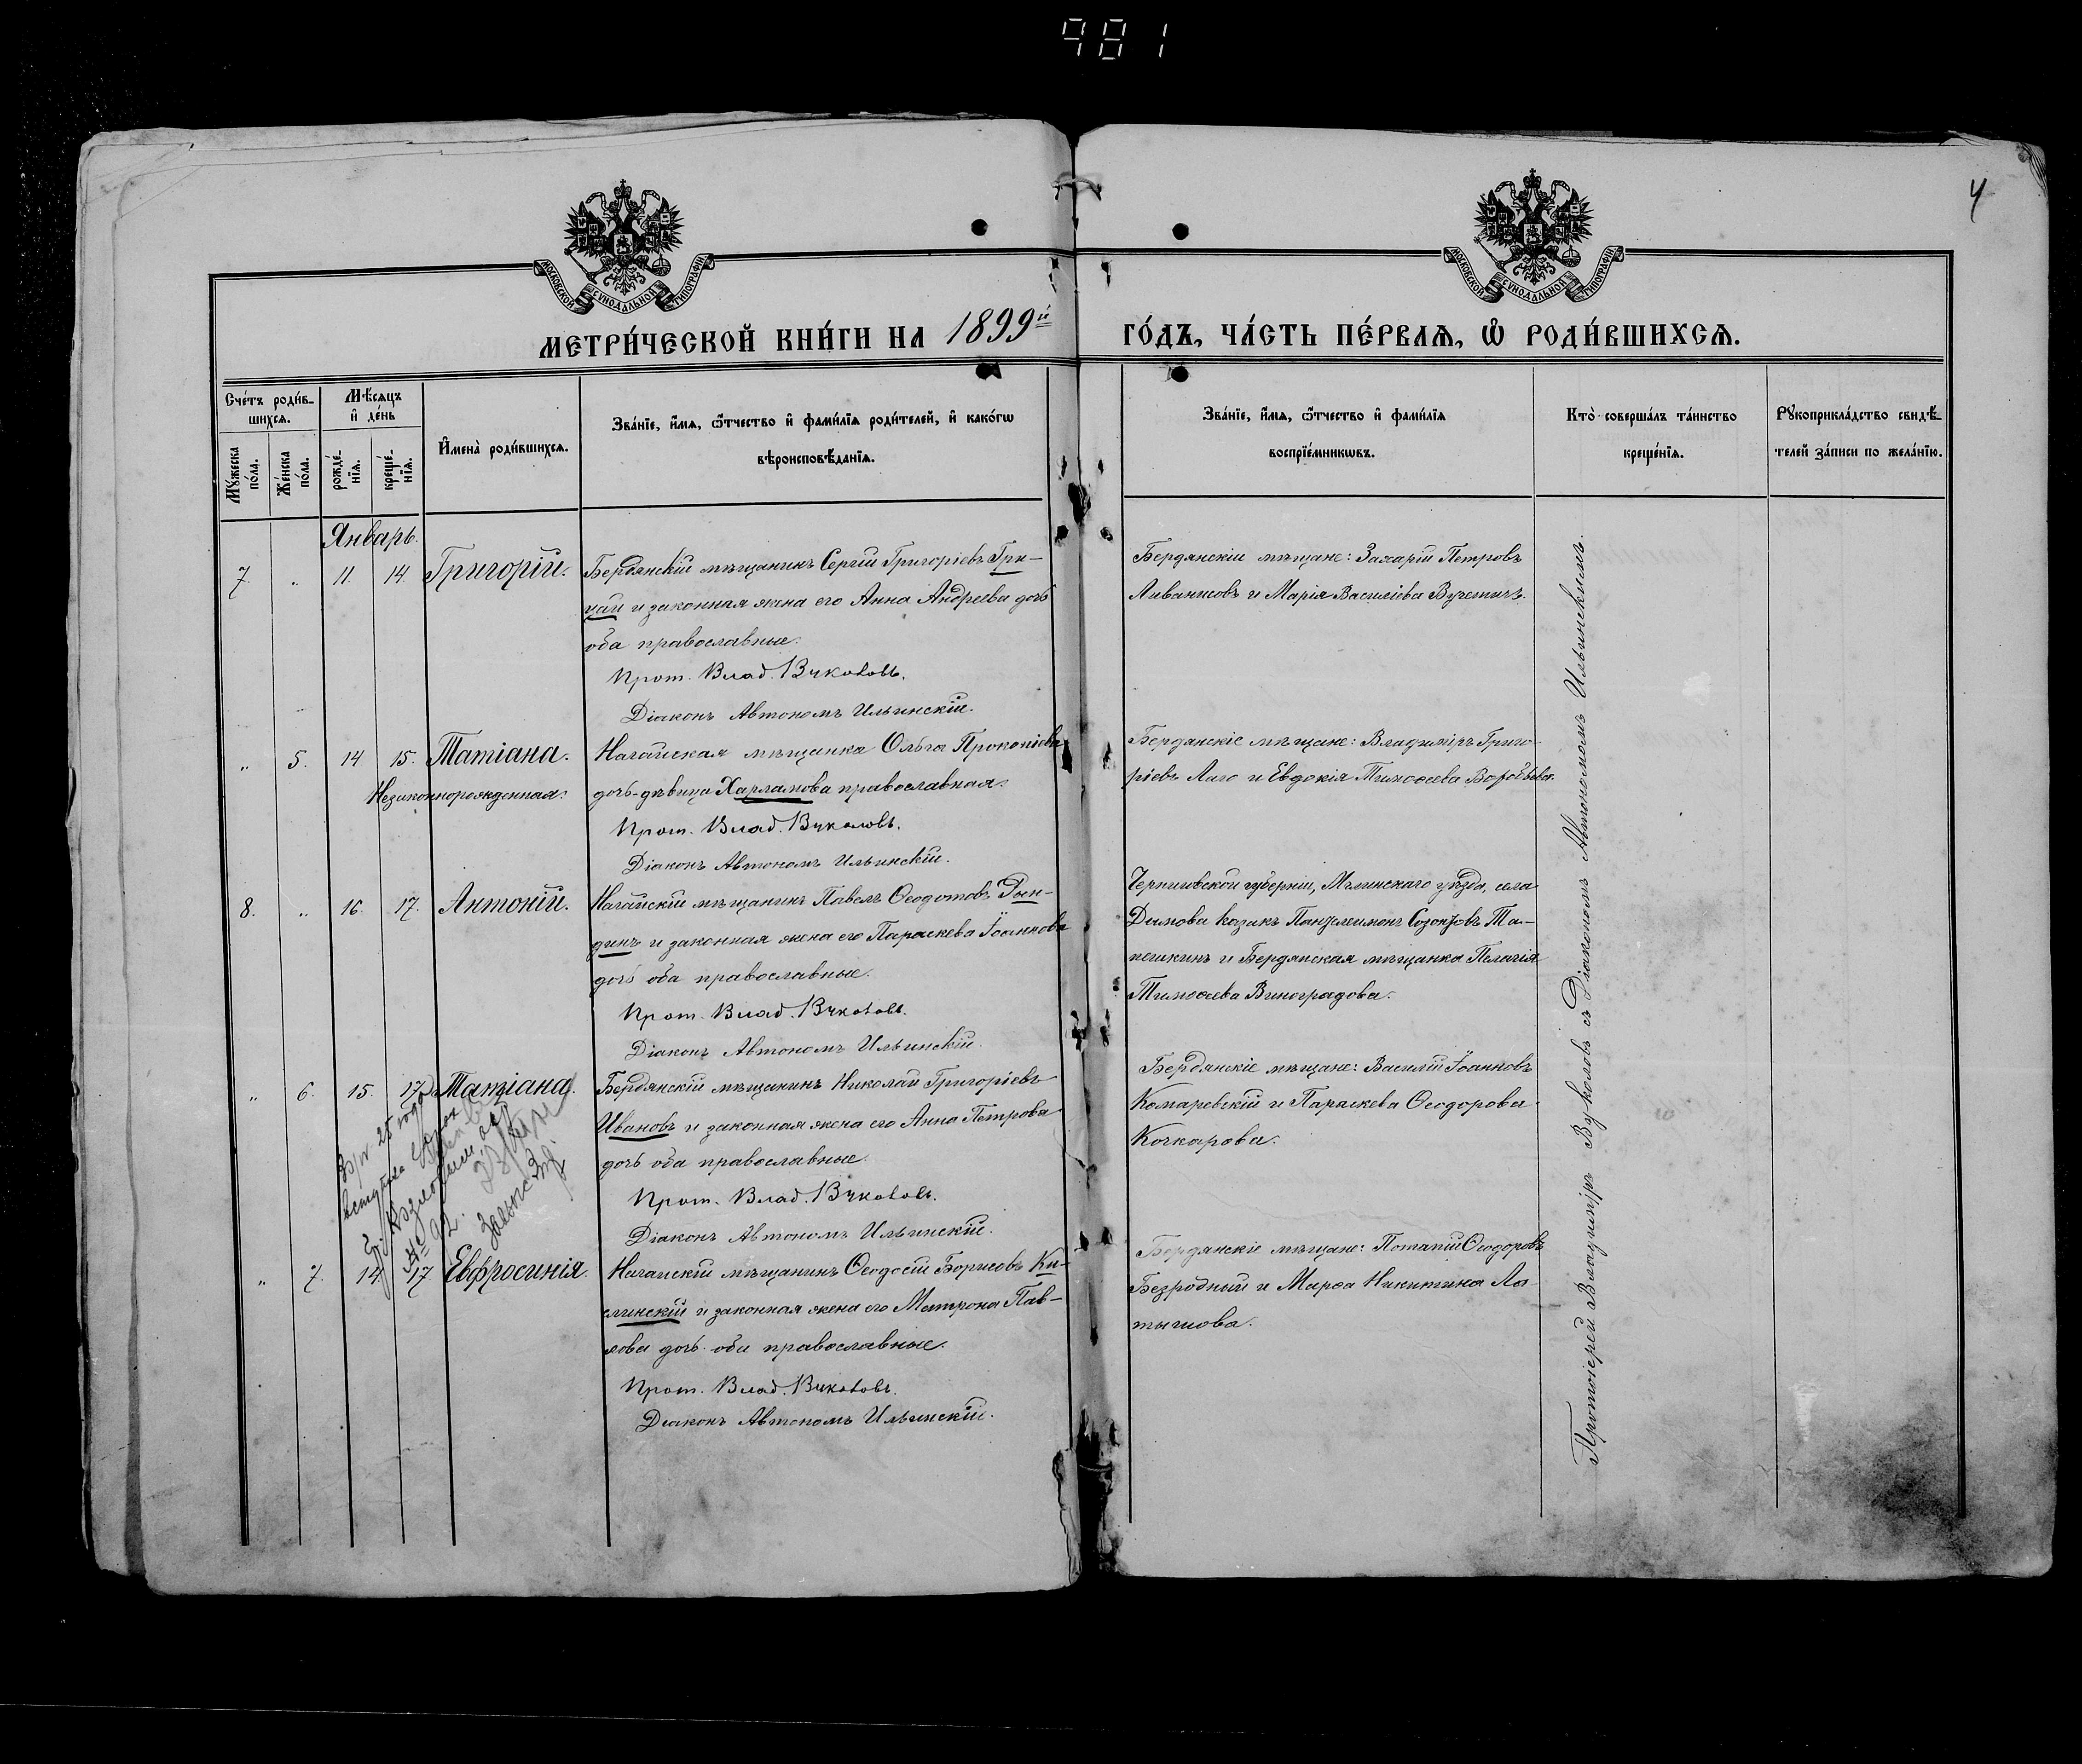 981
4
МОСКОВСКОЙ СѴНОДАЛЬНОЙ ТИПОГРАФІИ
МОСКОВСКОЙ СѴНОДАЛЬНОЙ ТИПОГРАФІИ
МЕТРИ́ЧЕСКОЙ КНИ́ГИ НА 1899й
ГО́ДЪ, ЧА́СТЬ ПЕ́РВАѦ, Ѡ҆ РОДИ́ВШИХСѦ.
Сче́тъ роди́в-
шихсѧ.
Мꙋ́жеска
по́ла.
Же́нска
по́ла.
Мѣ́сѧцъ
и҆ де́нь
рожде́-
нїѧ.
креще́-
нїѧ.
И҆мена̀ роди́вшихсѧ.
Зва́нїе, и҆́мѧ, ѻ҆́тчество и҆ фами́лїѧ роди́телей, и҆ како́гѡ
вѣроисповѣ́данїѧ.
Зва́нїе, и҆́мѧ, ѻ҆́тчество и҆ фами́лїѧ
воспрїе́мникѡвъ.
Кто̀ соверша́лъ та́инство
креще́нїѧ.
Рꙋкоприкла́дство свидѣ́-
телей за́писи по жела́нїю.
Январь.
7. „ 11. 14. Григорій.
Бердянскій мѣщанинъ Сергій Григоріевъ Гри-
цай и законная жена его Анна Андреева дочь
оба православные.
Прот. Влад. Вуколовъ.
Діаконъ Автономъ Ильинскій.
Бердянскіи мѣщане: Захарій Петровъ
Ливанисовъ и Марія Василіева Вучетичъ.
„ 5. 14 15. Татіана.
Незаконнорожденная.
Ногайская мѣщанка Ольга Прокопіева
дочь-дѣвица Харламова православная.
Прот. Влад. Вуколовъ.
Діаконъ Автономъ Ильинскій.
Бердянскіе мѣщане: Владиміръ Григо-
ріевъ и Евдокія Тимоѳеева Воробьева.
8. „ 16. 17. Антоній.
Ногайскій мѣщанинъ Павелъ Ѳеодотовъ Дын-
динъ и законная жена его Параскева Іоаннова
дочь оба православные.
Прот. Влад. Вуколовъ.
Діаконъ Автономъ Ильинскій.
Черниговской губерніи, Мглинскаго уѣзда, села
Димова казакъ Пантелеимонъ Созонтовъ Та-
пешкинъ и Бердянская мѣщанка Пелагія
Тимоѳеева Виноградова.
„ 6. 15. 17. Татіана.
Бердянскій мѣщанинъ Николай Григоріевъ
Ивановъ и законная жена его Анна Петрова
дочь оба православные.
Прот. Влад. Вуколовъ.
Діаконъ Автономъ Ильинскій.
Бердянскіе мѣщане: Василій Іоанновъ
Комаревскій и Параскева Ѳеодорова
Кочкарова.
„ 7. 14. 17. Евфросинія.
Ногайскій мѣщанинъ Ѳеодосій Борисовъ Ки-
слинскій и законная жена его Матрона Пав-
лова дочь оба православные.
Прот. Влад. Вуколовъ.
Діаконъ Автономъ Ильинскій.
Бердянскіе мѣщане: Потапій Ѳеодоровъ
Безродный и Марѳа Никитина Ла-
тышова.
Протоіерей Владиміръ Вуколовъ съ Діакономъ Автономомъ Ильинскимъ.